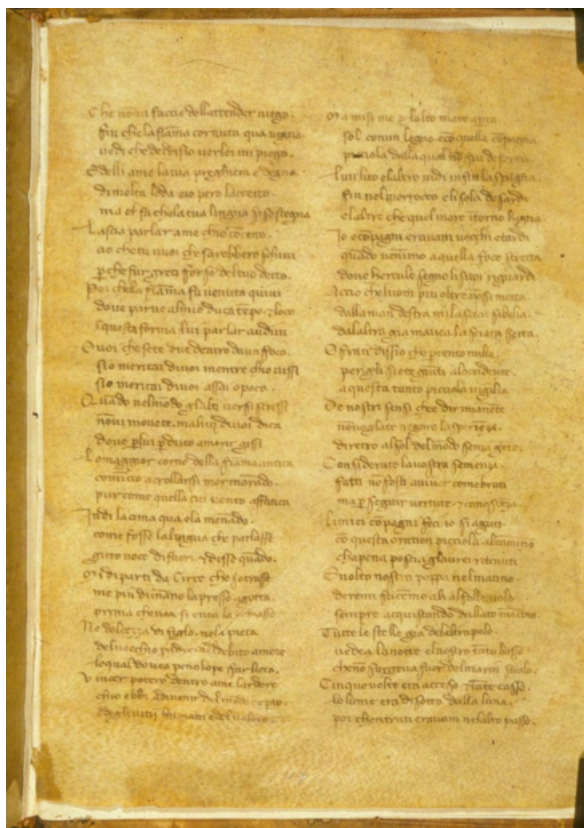 Che nomi facie dellattender niego.
fin che la fiāma cornuta qua vegna
vedi che del disio ver lei mi piego.
Ed elli ame la tua preghiera e degna
di molta loda eio pero laccetto.
ma el fa che la tua lingua si sostegna
Lascia parlar ame chio cōcetto.
cio che tu vuoi che sarebbero schivi
p che fur greci forse del tuo detto.
Poi che la fiāma fu venuta quivi
dove parve al mio duca tēpo & loco
i questa forma lui parlar audivi
O voi che sete due dentro duno foco.
sio meritai di voi mentre chio vissi
sio meritai di voi assai o poco.
Quādo nel mōdo gli alti versi scrissi
nō vi movete. ma lun di voi dica
dove p lui pduto amorir gissi
Lo maggior corno della fiāma antica
comīcio a crollarsi mormorādo.
pur come quella cui vento affatica
Indi la cima qua e la menādo.
come fosse la lingua che parlasse
gitto voce di fuor & disse quādo.
Mi diparti da Circe che sottrasse
me piu dūano la presso a gaeta.
prima che
No dolcezza di figlo. ne la pieta
del vecchio padre. nel debito amore
lo qual dovea penolope far lieta.
Vincer potero dentro ame lardore
chio ebbi a divenir del mōdo expto
Ma misi me p lalto mare apto
sol con un legno. e cō quella cōpagna
picciola dalla qual nō fui deserto.
Lun lito e laltro vidi infin la spagna.
fin nel morrocco e lisola de sardi
e laltre che quel mare itorno bagna
Io e cōpagni eravam vecchi e tardi
quādo venimo a quella foce stretta
dove hercule segno li suoi riguardi
Accio che luom piu oltre nō si metta
dalla man destra mi lasciai sibilia.
da laltra gia mavea lasciata setta.
O frati dissio che p cento milia
perigli siete giūti aloccidente.
a questa tanto picciola vigilia
De nostri sensi
non vogliate negare
diretro al sol del mōdo senza gēte.
Considerate la vostra semenza.
fatti nō foste aviver come bruti
ma p seguir vertute &
Li miei cōpagni fecio si aguti
cō questa oration picciola al camino
chapena poscia glavrei ritenuti
E volta nostra poppa nel matino
de remi facemo ali al folle volo
sempre acquistando dal lato
Tutte le stelle gia de laltro polo.
vedea la notte el nostro tāto basso
che nō surgeva fuor del marin suolo.
Cinque volte era acceso & tāte casso.
lo lume era di sotto dalla luna.
poi chentrati eravam ne lalto passo.